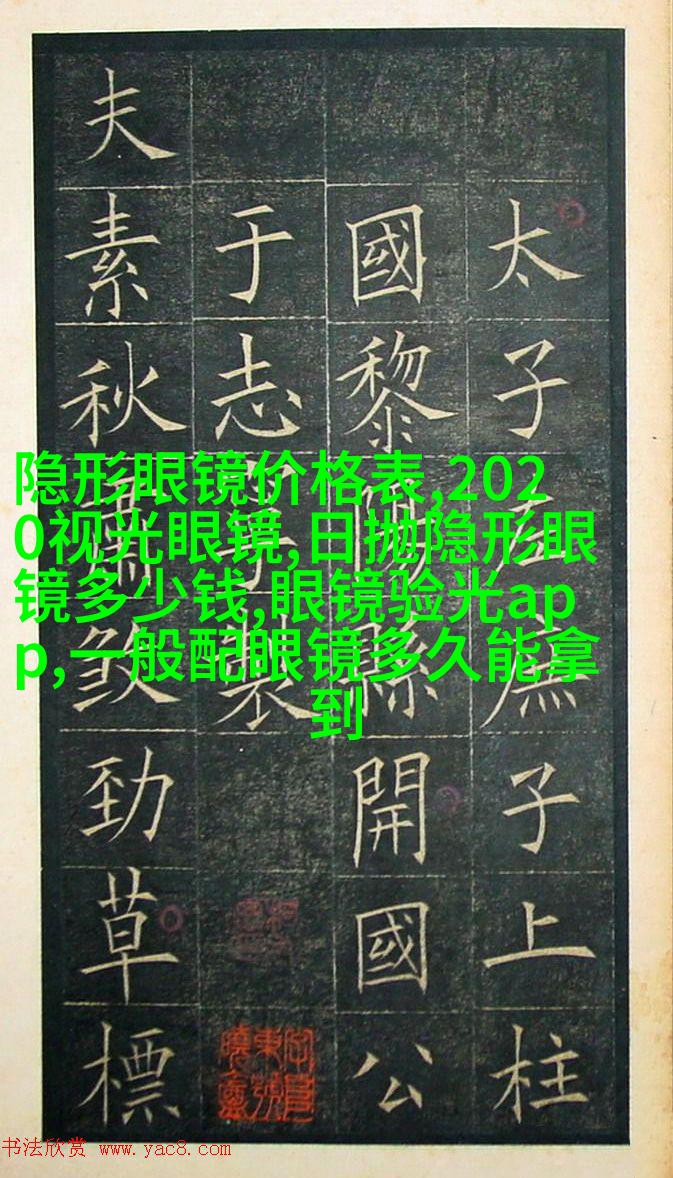 太子左庶子上柱
國黎陽縣開國公
于志寧製
夫素秋肅煞勁草標
隐形眼镜价格表,202
0视光眼镜,日抛隐形眼
镜多少钱,眼镜验光ap
p,一般配眼镜多久能拿
到
书法欣赏 www.yac8.com